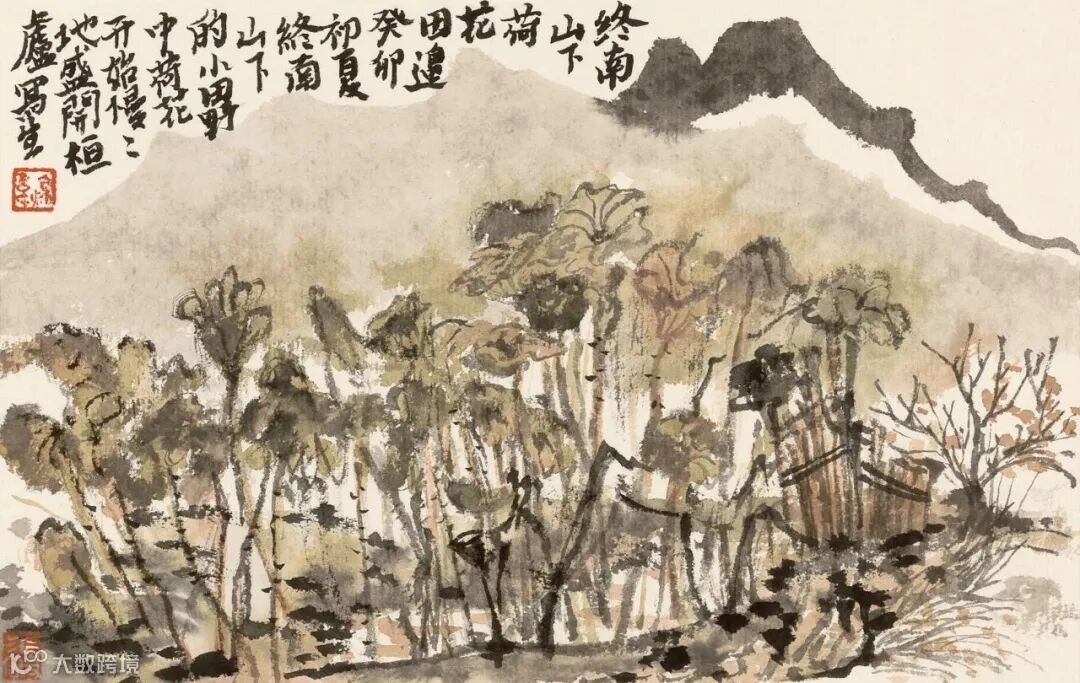 终南
山下
荷
花
田邉
癸卯
初夏
終南
山下
的小田野
中荷花
开始慢〻
地盛開桓
廬寫生
大数跨境